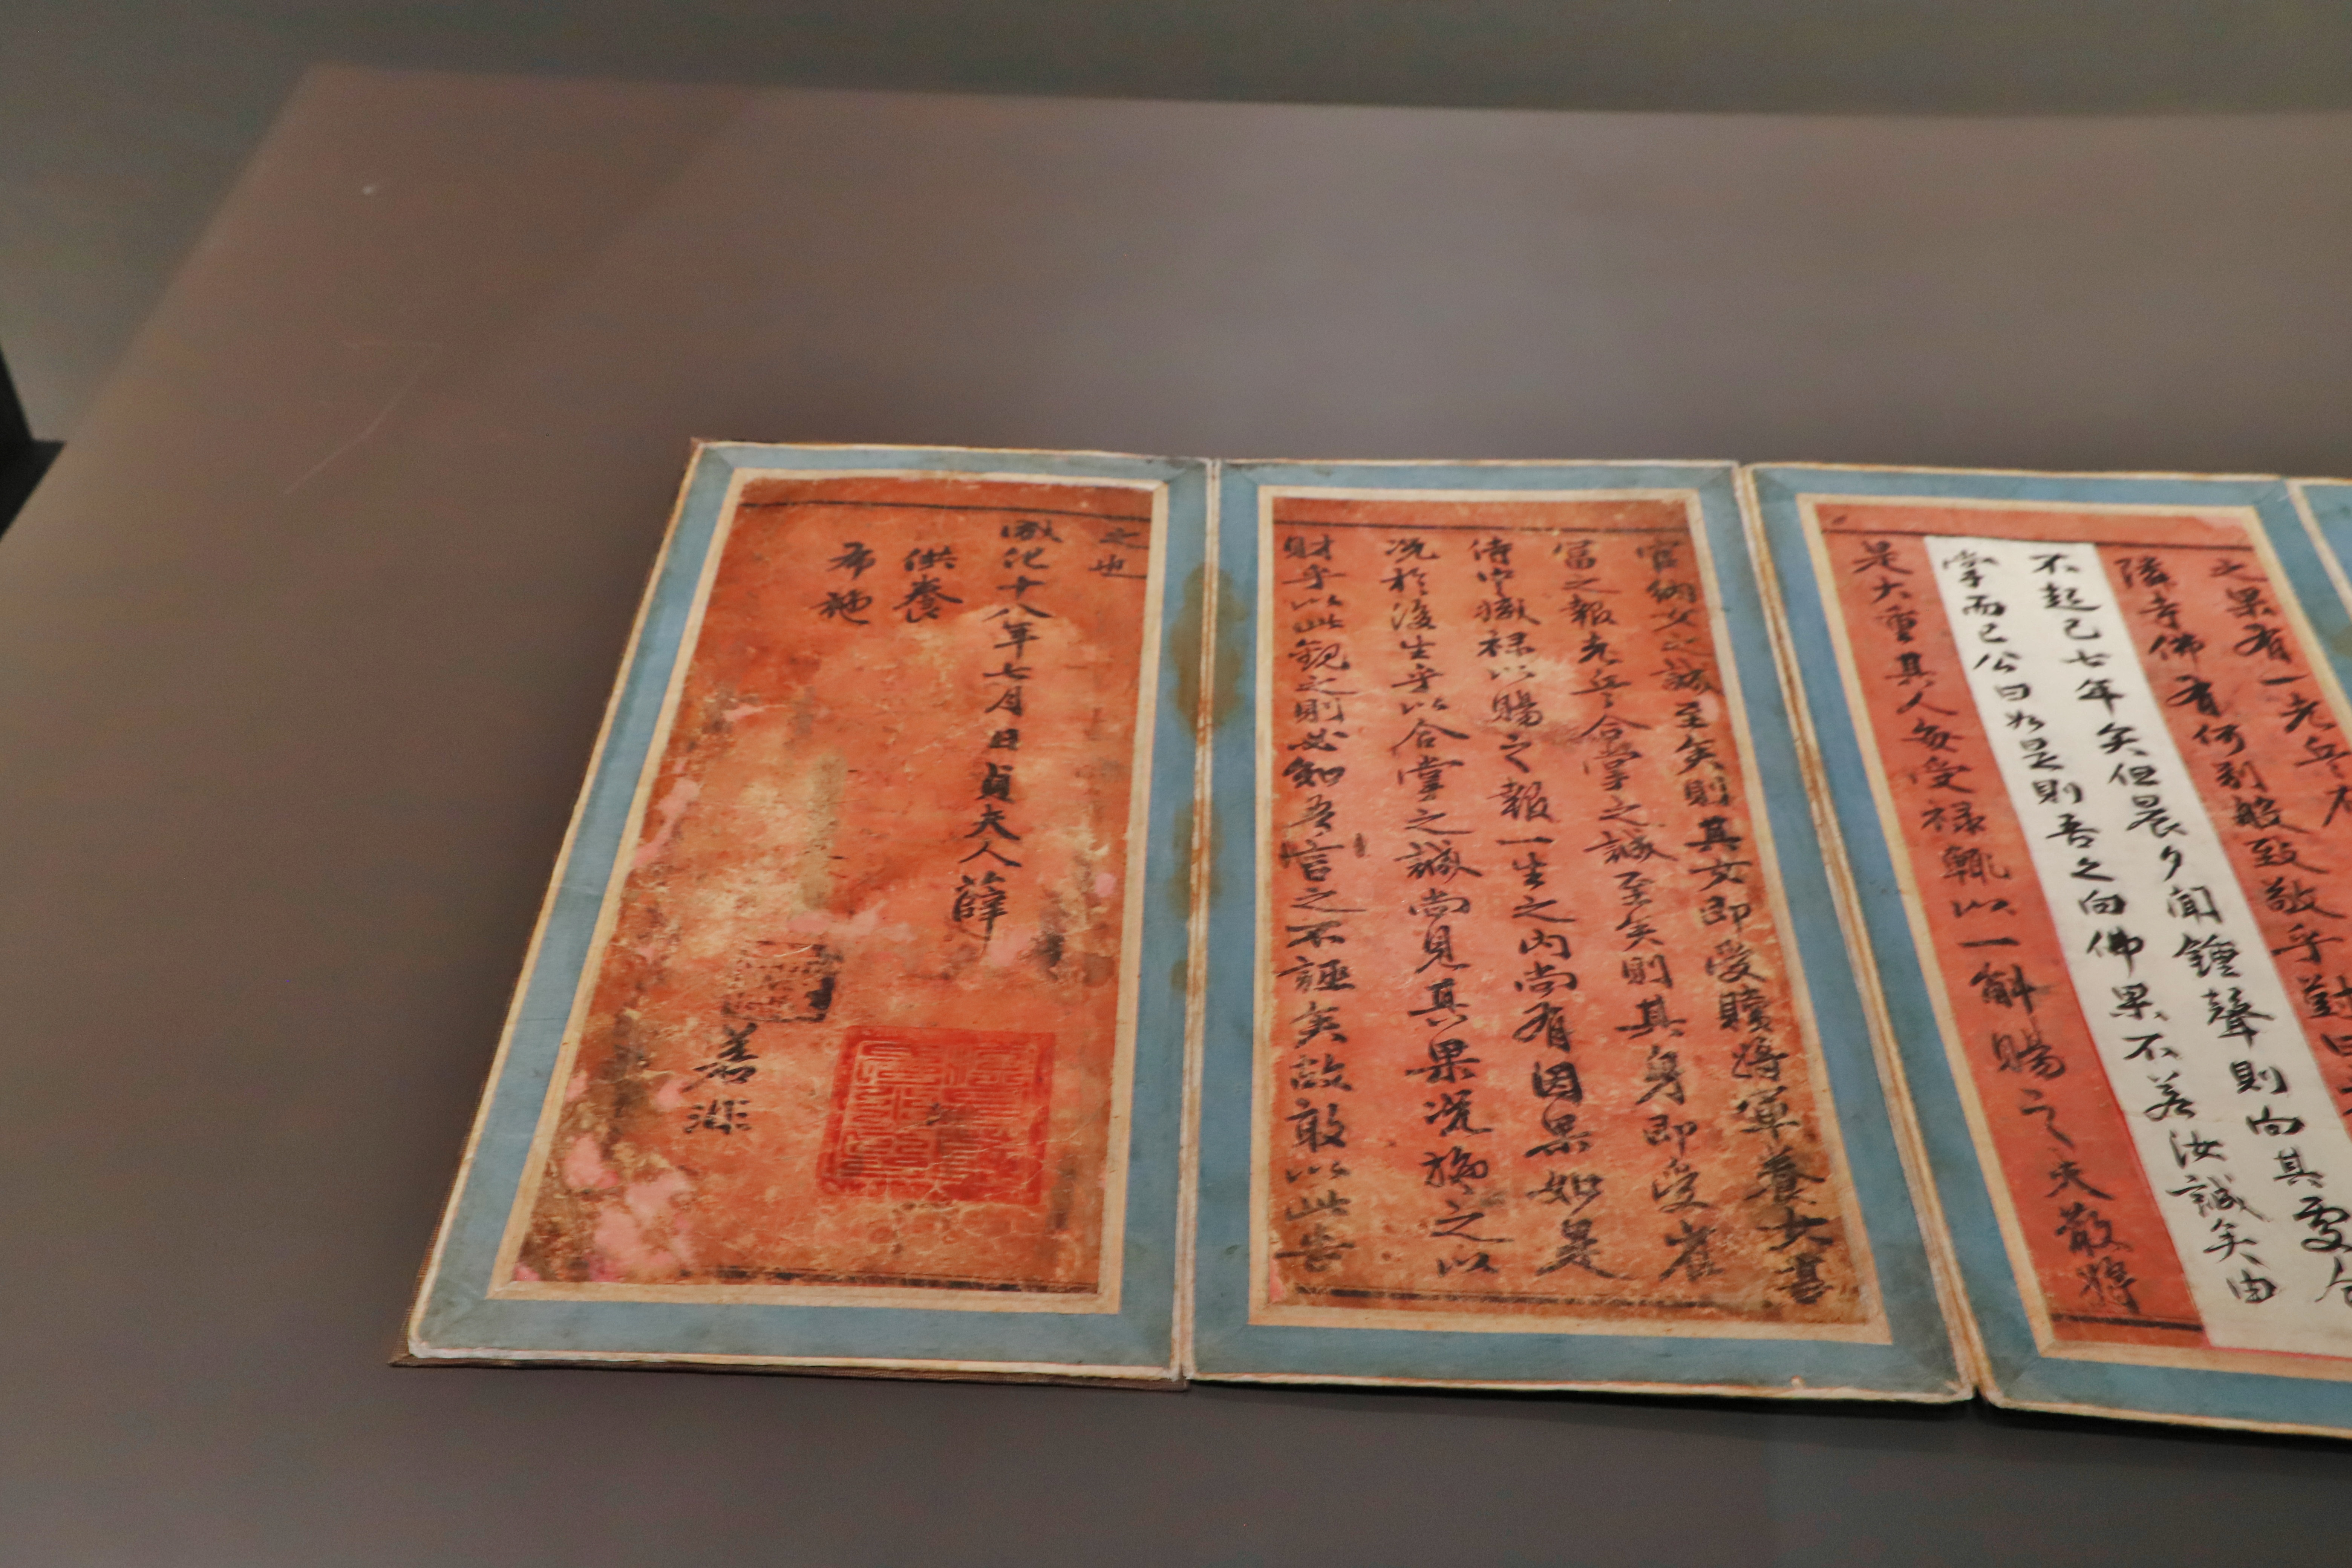 之果有一老兵
隣寺佛有何别般致敬乎對曰
不起已七年矣但晨夕聞鍾聲則向其處合
掌而已公曰如是則吾之向佛果不若汝誠矣由
是大重其人每受禄輒以一斛賜之夫散將
官納女之誠至矣則其女即受將軍養女甚
富之報老兵合掌之誠至矣則其身即受崔
侍中職禄以賜之報一生之內尚有因果如是
况於後生乎以合掌之誠尚見真果况施之以
財乎以此觀之則必知吾言之不誣矣故敢以此告
之也
成化十八年七月日貞夫人薛
供養
布施